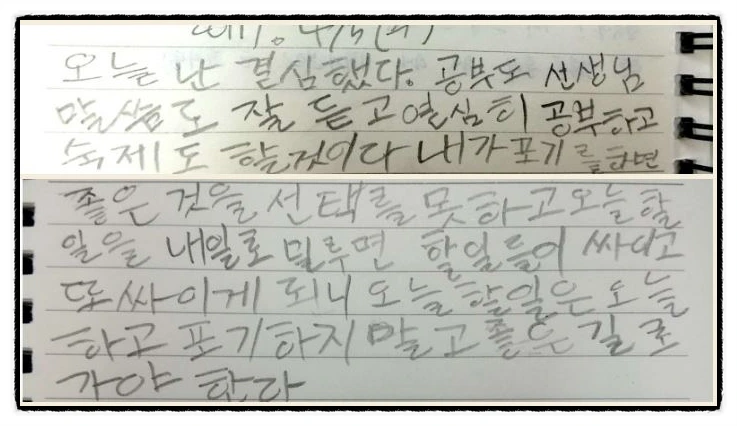 오늘 난 결심했다. 공부도 선생님
말씀도 잘 듣고 열심히 공부하고
숙제도 할것이다 내가 포기를하면
좋은 것을 선택를 못하고 오늘 할
일을 내일로 밀루면 할일들이 싸이고
또 싸이게 되니 오늘 할일은 오늘
하고 포기하지 말고 좋은 길로
가야 한다